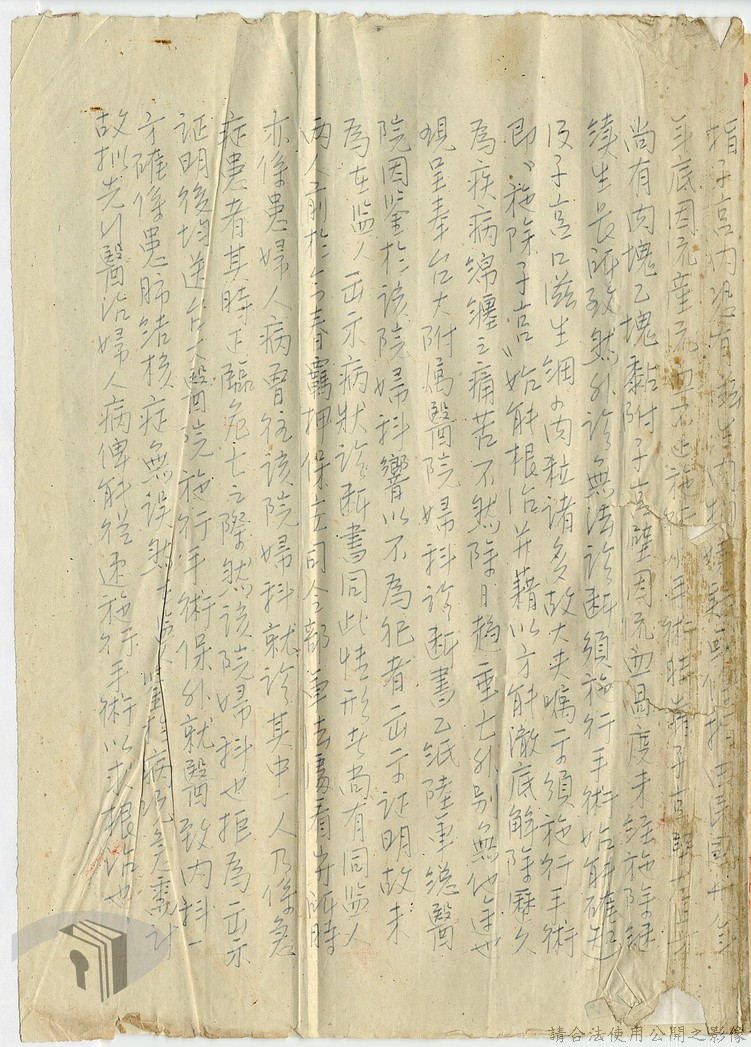 指子宮內恐有滋生肉物
年底因流產流血不止施行小手術時靠子宮壁
尚有肉塊乙塊黏附子宮壁因流血過度未經施除繼
續生長所致然外診無法診斷須施行手術始能確
及子宮口滋生細小肉粒諸多故大夫囑示須施行手術
即〝施除子宮〞始能根治并藉以方能澈底解除歷久
為疾病綿纏之痛苦不然除日趨重亡外別無他途
現呈奉台大附屬醫院婦科診斷書乙紙陸軍總醫
院因鑒於該院婦科嚮以不為犯者出示証明故未
為在監人出示病狀診斷書同此情形者尚有同監人
兩人前於今春羈押保安司令部軍法處看守所時
亦係患婦人病曾往該院婦科就診其中一人乃係急
症患者其時正臨危亡之際然該院婦科也拒為出示
証明後均送台大醫院施行手術保外就醫致內科一
方確係患肺結核症無誤然 病
故擬先行醫治婦人病俾能從速施行手術以求根治也
請合法使用公開之影像